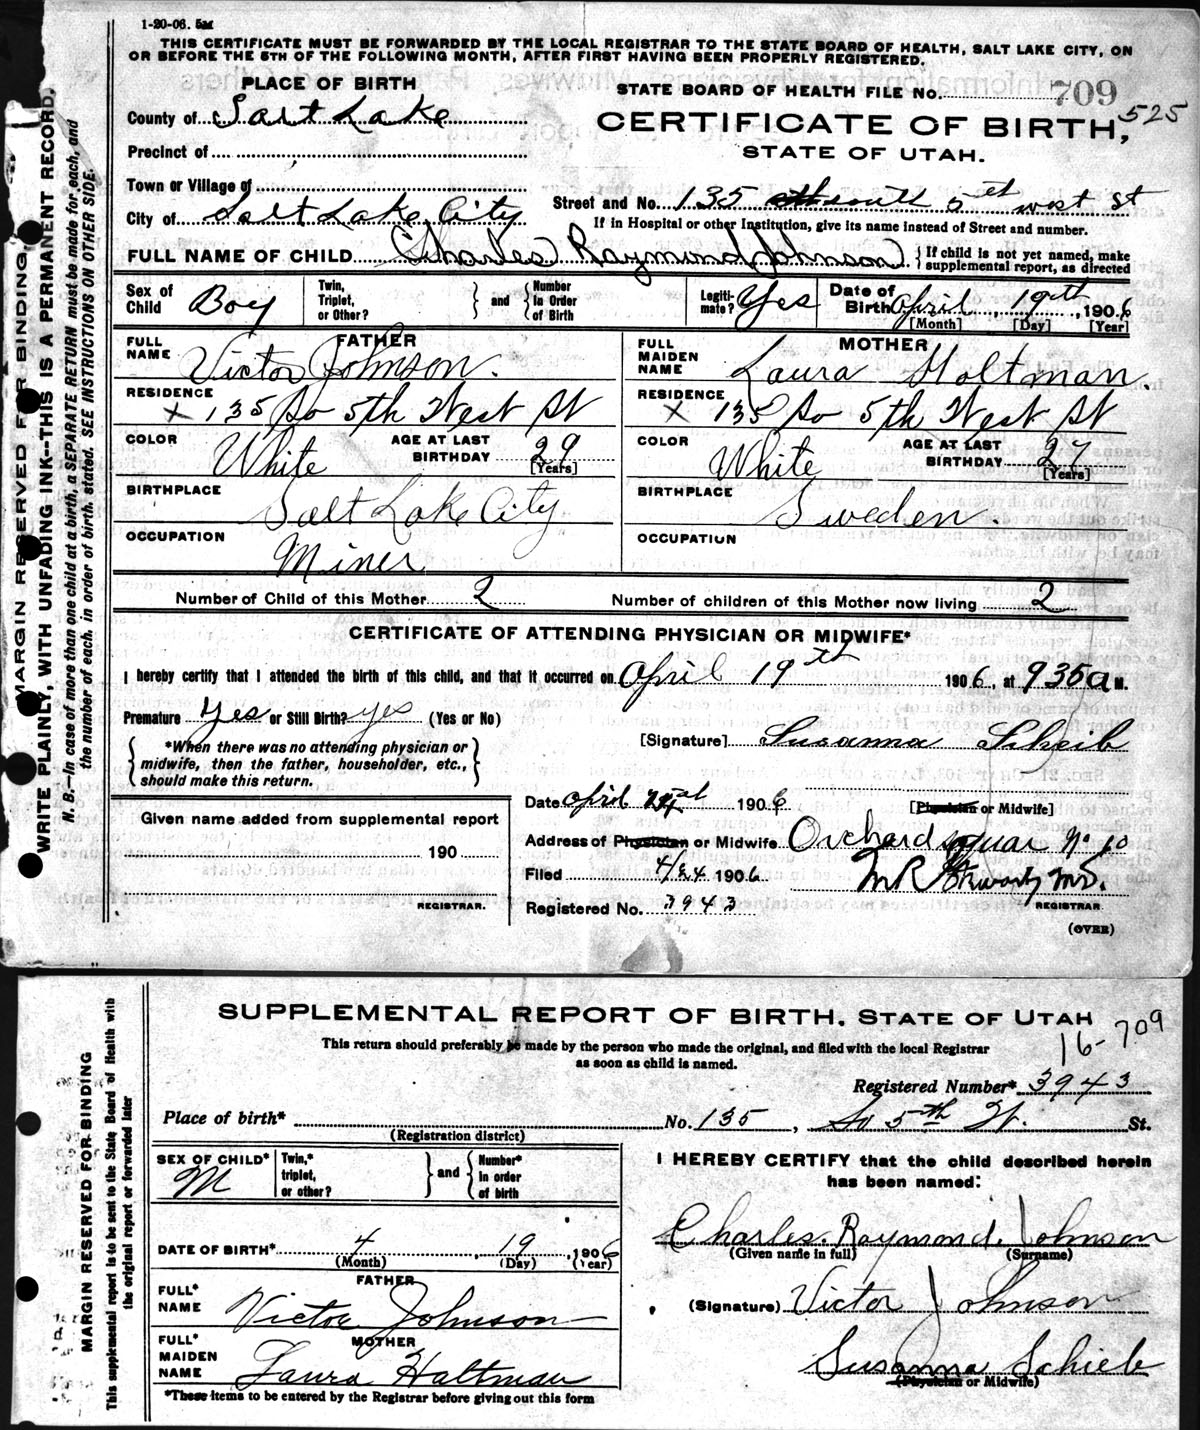 1-20-06. 5M
THIS CERTIFICATE MUST BE FORWARDED BY THE LOCAL REGISTRAR TO THE STATE BOARD OF HEALTH, SALT LAKE CITY, ON
OR BEFORE THE 5TH OF THE FOLLOWING MONTH, AFTER FIRST HAVING BEEN PROPERLY REGISTERED.
PLACE OF BIRTH
STATE BOARD OF HEALTH FILE No. 709
525
County of Salt Lake
CERTIFICATE OF BIRTH,
STATE OF UTAH.
Precinct of
Town or Village of
Street and No. 135 south 5th west St
City of Salt Lake City
If in Hospital or other Institution, give its name instead of Street and number.
FULL NAME OF CHILD Charles Raymond Johnson { If child is not yet named, make supplemental report, as directed
Sex of Child Boy
Twin, Triplet, or Other? } and { Number in Order of Birth
Legitimate? Yes
Date of Birth April 19th, 1906
[Month] [Day] [Year]
FATHER
FULL NAME Victor Johnson.
MOTHER
FULL MAIDEN NAME Laura Holtman.
RESIDENCE X 135 So 5th West St
RESIDENCE X 135 So 5th West St
COLOR White AGE AT LAST BIRTHDAY 29 [Years]
COLOR White AGE AT LAST BIRTHDAY 27 [Years]
BIRTHPLACE Salt Lake City
BIRTHPLACE Sweden.
OCCUPATION Miner
OCCUPATION
Number of Child of this Mother 2 Number of children of this Mother now living 2
CERTIFICATE OF ATTENDING PHYSICIAN OR MIDWIFE*
I hereby certify that I attended the birth of this child, and that it occurred on April 19th 1906, at 935 a M.
Premature yes or Still Birth? yes (Yes or No)
{ *When there was no attending physician or midwife, then the father, householder, etc., should make this return. }
[Signature] Susanna Scheib
Date april 1906 [Physician or Midwife]
Given name added from supplemental report
190
REGISTRAR.
Address of Physician or Midwife Orchard No 10
Filed 4/24 1906
REGISTRAR
Registered No. 3943
(OVER)
MARGIN RESERVED FOR BINDING
WRITE PLAINLY, WITH UNFADING INK--THIS IS A PERMANENT RECORD.
N. B.—In case of more than one child at a birth, a SEPARATE RETURN must be made for each, and
the number of each, in order of birth, stated. SEE INSTRUCTIONS ON OTHER SIDE.
SUPPLEMENTAL REPORT OF BIRTH, STATE OF UTAH
16-709
This return should preferably be made by the person who made the original, and filed with the local Registrar
as soon as child is named.
Registered Number* 3943
Place of birth* No. 135, So 5th W. St.
(Registration district)
SEX OF CHILD* M
Twin,* triplet, or other? } and { Number* in order of birth
I HEREBY CERTIFY that the child described herein
has been named:
Charles Raymond Johnson
(Given name in full) (Surname)
DATE OF BIRTH* 4, 19, 1906
(Month) (Day) (Year)
FATHER
FULL* NAME Victor Johnson
(Signature) Victor Johnson
MOTHER
FULL* MAIDEN NAME Laura Haltman
Susanna Schieb
(Physician or Midwife)
*These items to be entered by the Registrar before giving out this form
MARGIN RESERVED FOR BINDING
This supplemental report is to be sent to the State Board of Health with
the original report or forwarded later